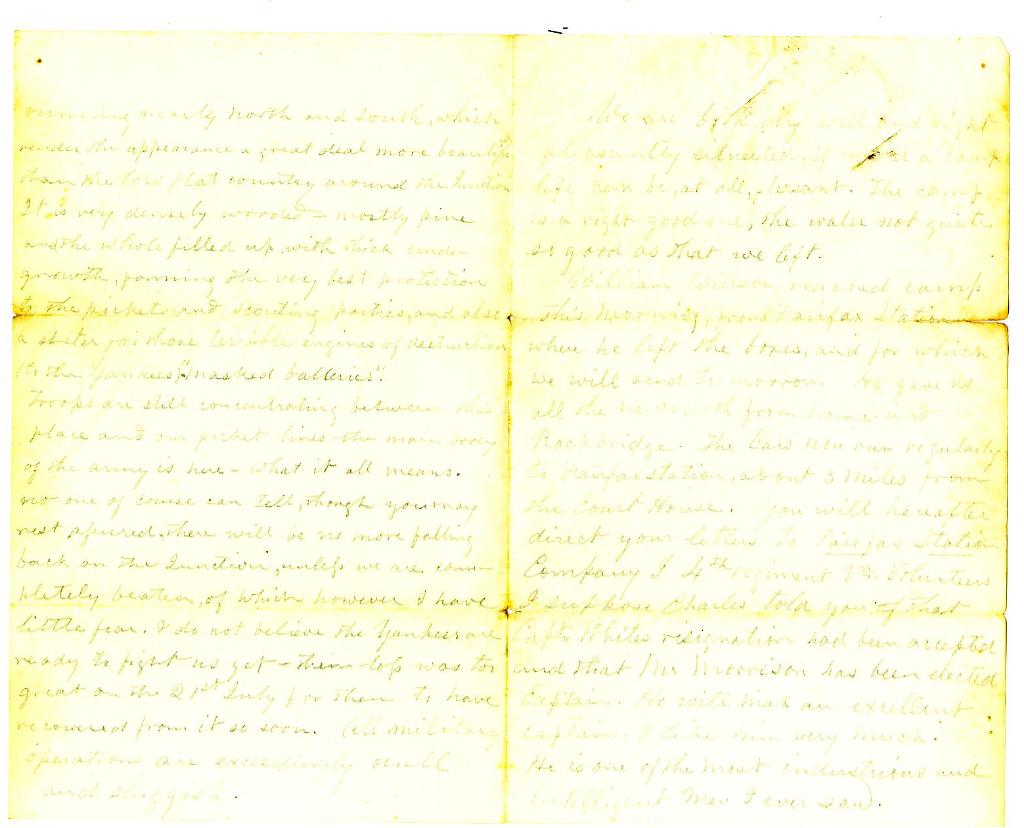 running nearly north and south, which
render the appearance a great deal more beautiful
than the low flat country around the Junction
It is very densely wooded - mostly pine
and the whole filled up with thick under
growth, forming the very best protection
to the pickets and scouting parties, and also
a shelter for those terrible engines of destruction
(to the Yankees) "masked batteries".
Troops are still concentrating between this
place and our picket lines - the main body
of the army is here - what it all means.
no one of course can tell, though you may
rest assured, there will be no more falling
back on the Junction, unless we are com-
pletely beaten, of which however I have
little fear. I do not believe the Yankees are
ready to fight us yet - their loss was too
great on the 21st July for them to have
recovered from it so soon. All military
operations are exceedingly dull
and sluggish.
We are both very well and right
pleasantly situated, if a camp
life can be, at all, plesant. The camp
is a right good one, the water not quite
so good as that we left.
William Willson reached camp
this Morning, from Fairfax Station
where he left the boxes, and for which
we will send to morrow. He gave us
all the news, both from home and
Rockbridge. The Cars now run regularly
to Fairfax station, about 3 Miles from
the Court House. You will hereafter
direct your letters to Fairfax Station
Company I 4th regiment Va. Volunteers
I suppose Charles told you that
Captn Whites resignation had been accepted
and that Mr Morrison has been elected
Captain. He will mak an excellent
captain. I like him very much.
He is one of the most industrious and
intelligent Men I ever saw.